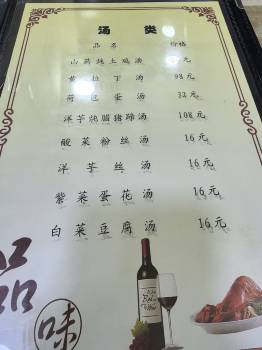 汤 类
品名 价格
山药炖土鸡汤 元
黄拉丁汤 98元
荷包蛋汤 32元
洋芋炖腊猪蹄汤 108元
酸菜粉丝汤 16元
洋芋丝汤 16元
紫菜蛋花汤 16元
白菜豆腐汤 16元
品味